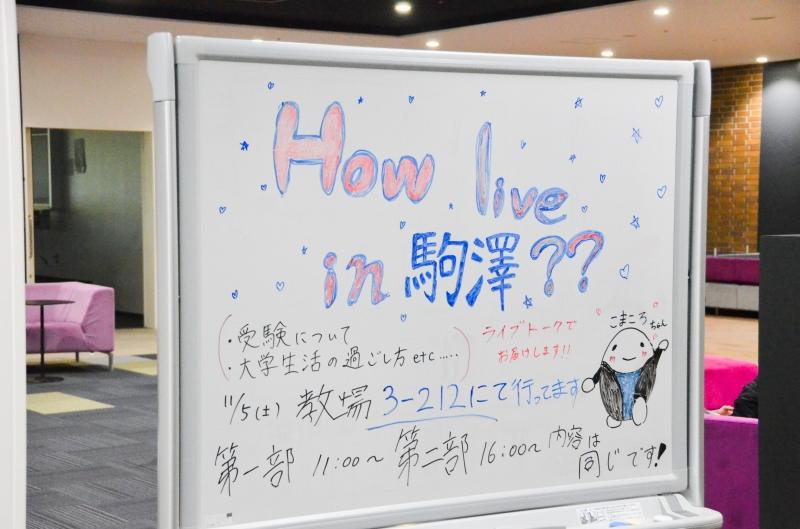 How live
in 駒澤??
・受験について
・大学生活の過ごし方 etc.....
ライブトークで
お届けします!!
こまころちゃん
11/5(土) 教場 3-212にて行ってます
第一部 11:00～ 第二部 16:00～ 内容は
同じです!